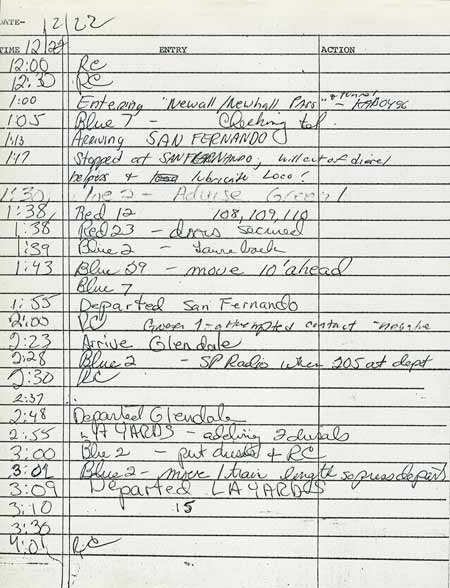 DATE- 12/22
TIME 12/22 ENTRY ACTION
12:00 RC
12:30 RC
1:00 Entering "Newall/Newhall Pass" & tunnel -
1:05 Blue 7 - Checking
1:13 Arriving SAN FERNANDO
1:17 Stopped at SAN FERNANDO, will cut of diesel
helpers & lubricate Loco!
1:30 2 - Advise Green 1
1:38 Red 12 108, 109, 110
1:38 Red 23 - doors secured
1:39 Blue 2 -
1:43 Blue 29 - move 10' ahead
Blue 7
1:55 Departed San Fernando
2:00 RC Green 1 - attempted contact -
2:23 Arrive Glendale
2:28 Blue 2 - SP Radio when 205 at dept
2:30 RC
2:37
2:48 Departed Glendale
2:55 LA YARDS - adding 2
3:00 Blue 2 - put & RC
3:01 Blue 2 - move 1 train length so press
3:09 Departed LA YARDS
3:10 15
3:30
4:01 RC